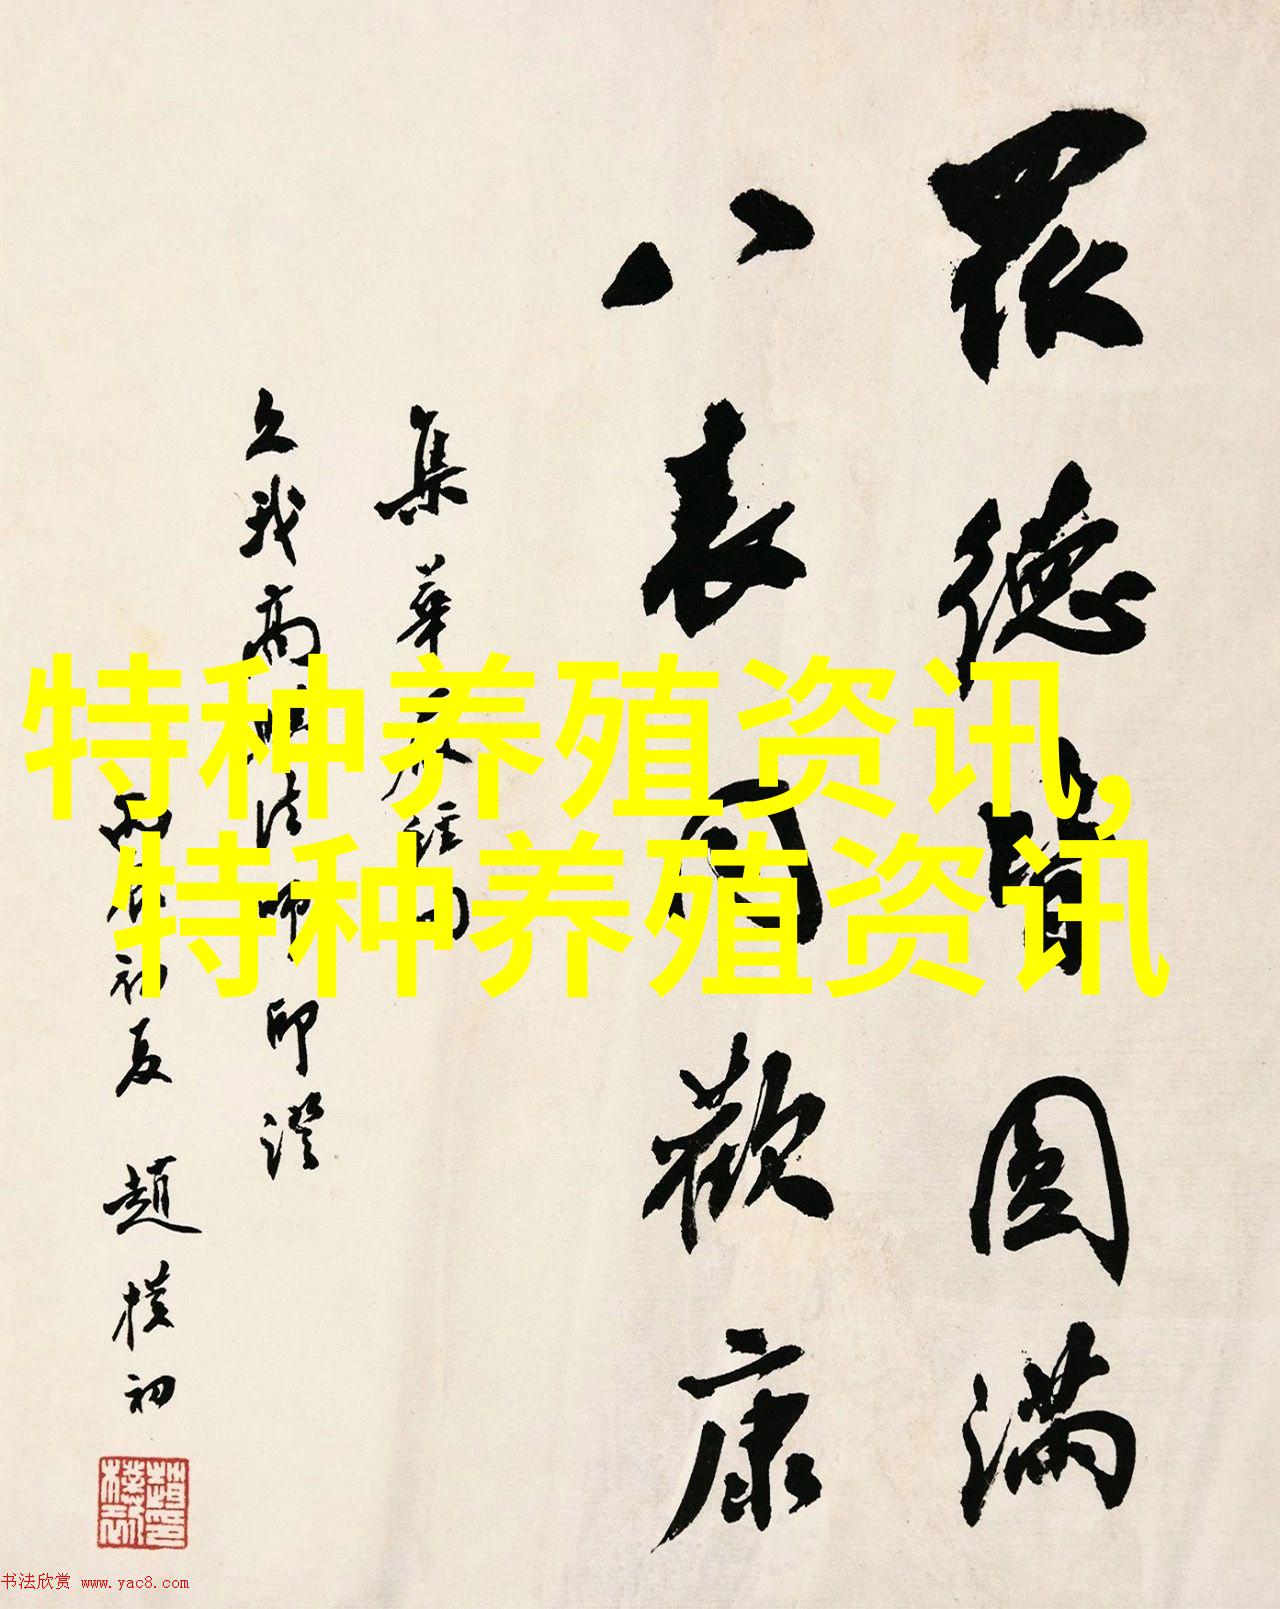 眾德皆圓滿
八表同歡康
集華嚴經句
久我高 法師印證
丙辰初夏 趙樸初
特种养殖资讯,
特种养殖资讯
书法欣赏 www.yac8.com